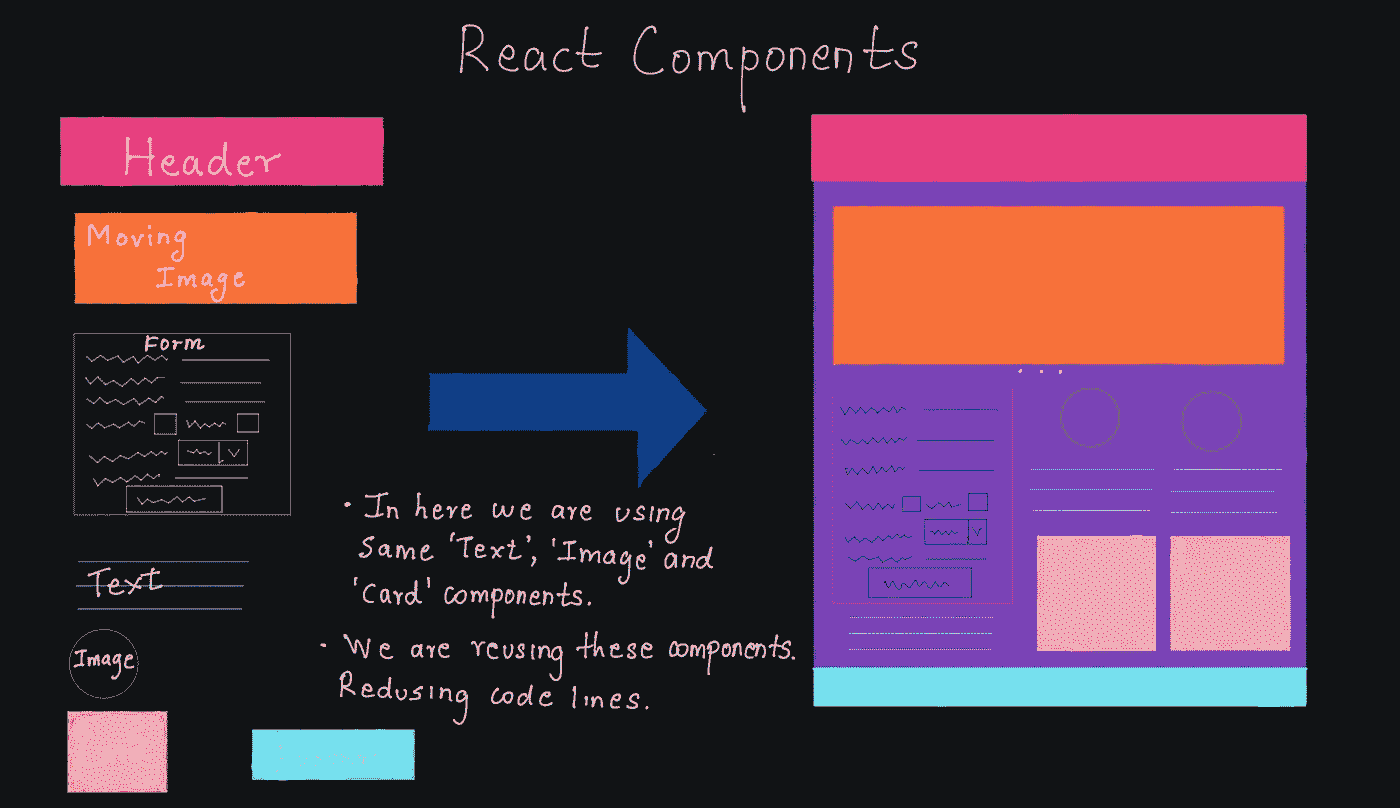 React Components
Header
Moving
Image
Form
Text
Image
• In here we are using
Same 'Text', 'Image' and
'Card' components.
• We are reusing these components.
Redusing code lines.